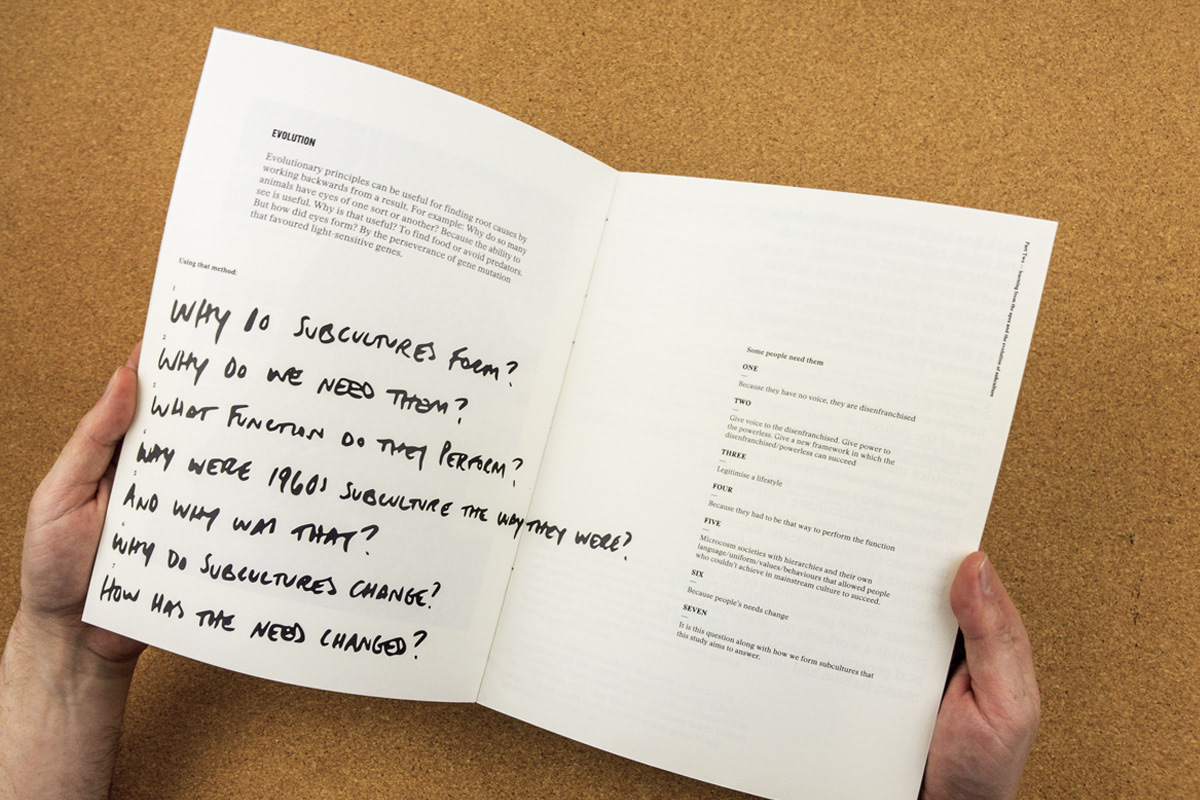 EVOLUTION
Evolutionary principles can be useful for finding root causes by
working backwards from a result. For example: Why do so many
animals have eyes of one sort or another? Because the ability to
see is useful. Why is that useful? To find food or avoid predators.
But how did eyes form? By the perseverance of gene mutation
that favoured light-sensitive genes.
Using that method:
1
WHY DO SUBCULTURES FORM?
2
WHY DO WE NEED THEM?
3
WHAT FUNCTION DO THEY PERFORM?
4
WHY WERE 1960s SUBCULTURE THE WAY THEY WERE?
5
AND WHY WAS THAT?
6
WHY DO SUBCULTURES CHANGE?
7
HOW HAS THE NEED CHANGED?
Part Two — learning from the apes and the evolution of subculture
Some people need them
ONE
—
Because they have no voice, they are disenfranchised
TWO
—
Give voice to the disenfranchised. Give power to
the powerless. Give a new framework in which the
disenfranchised/powerless can succeed
THREE
—
Legitimise a lifestyle
FOUR
—
Because they had to be that way to perform the function
FIVE
—
Microcosm societies with hierarchies and their own
language/uniform/values/behaviours that allowed people
who couldn't achieve in mainstream culture to succeed.
SIX
—
Because people's needs change
SEVEN
—
It is this question along with how we form subcultures that
this study aims to answer.